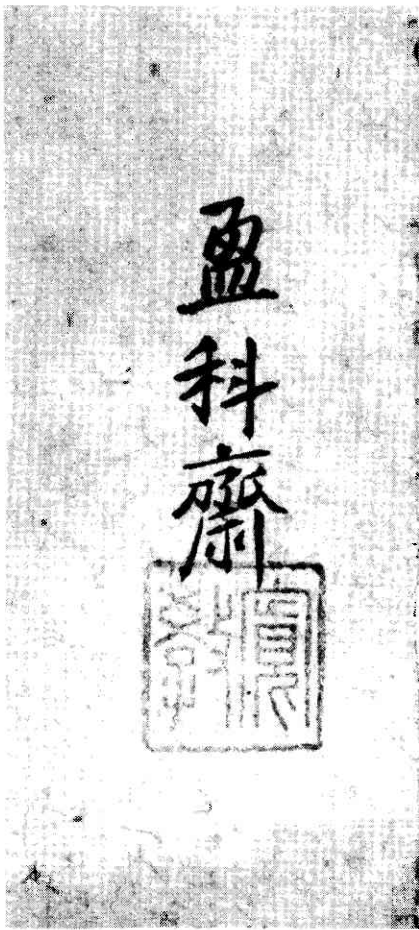 盈科齋